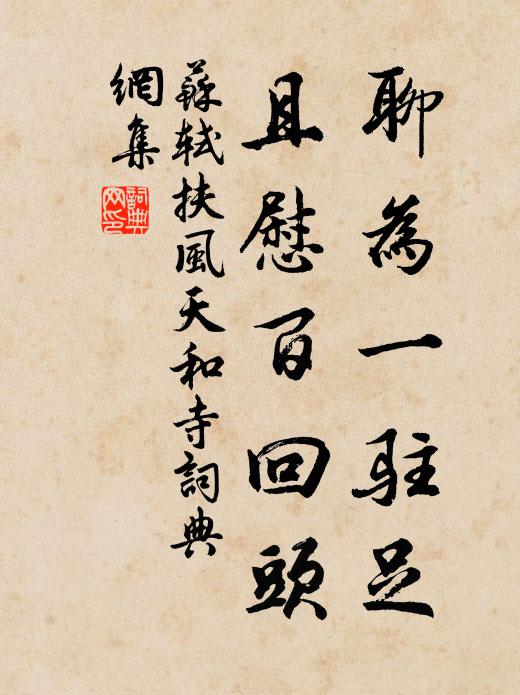 聊為一駐足
且慰百回頭
蘇軾扶風天和寺詞典
網集
詞典網印